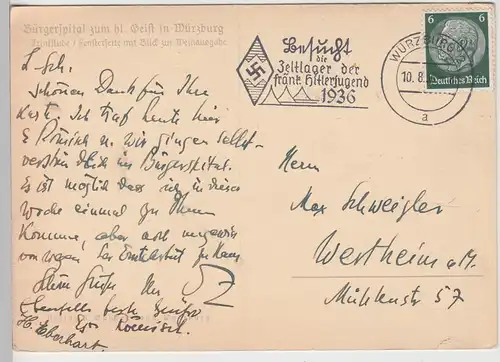 Bürgerspital zum hl. Geist in Würzburg
Trinkstube / Fensterseite mit Blick zur Weinausgabe
Besucht
die
Zeltlager der
fränk. Hitlerjugend
1936
WÜRZBURG
10.8.
a
6 6
Deutsches Reich
L. Sch.
Schönen Dank für Ihre
Karte. Ich traf heute hier
u. wir gingen selbst-
verständlich ins Bürgerspital.
Es ist möglich dass ich in dieser
Woche einmal zu Ihnen
komme, aber noch ungewiss
von wegen
Grüße Ihr
Ebenfalls beste Grüße
H. Eberhart.
Herrn
Max Schweigler
Wertheim a/M.
Mühlenstr 57